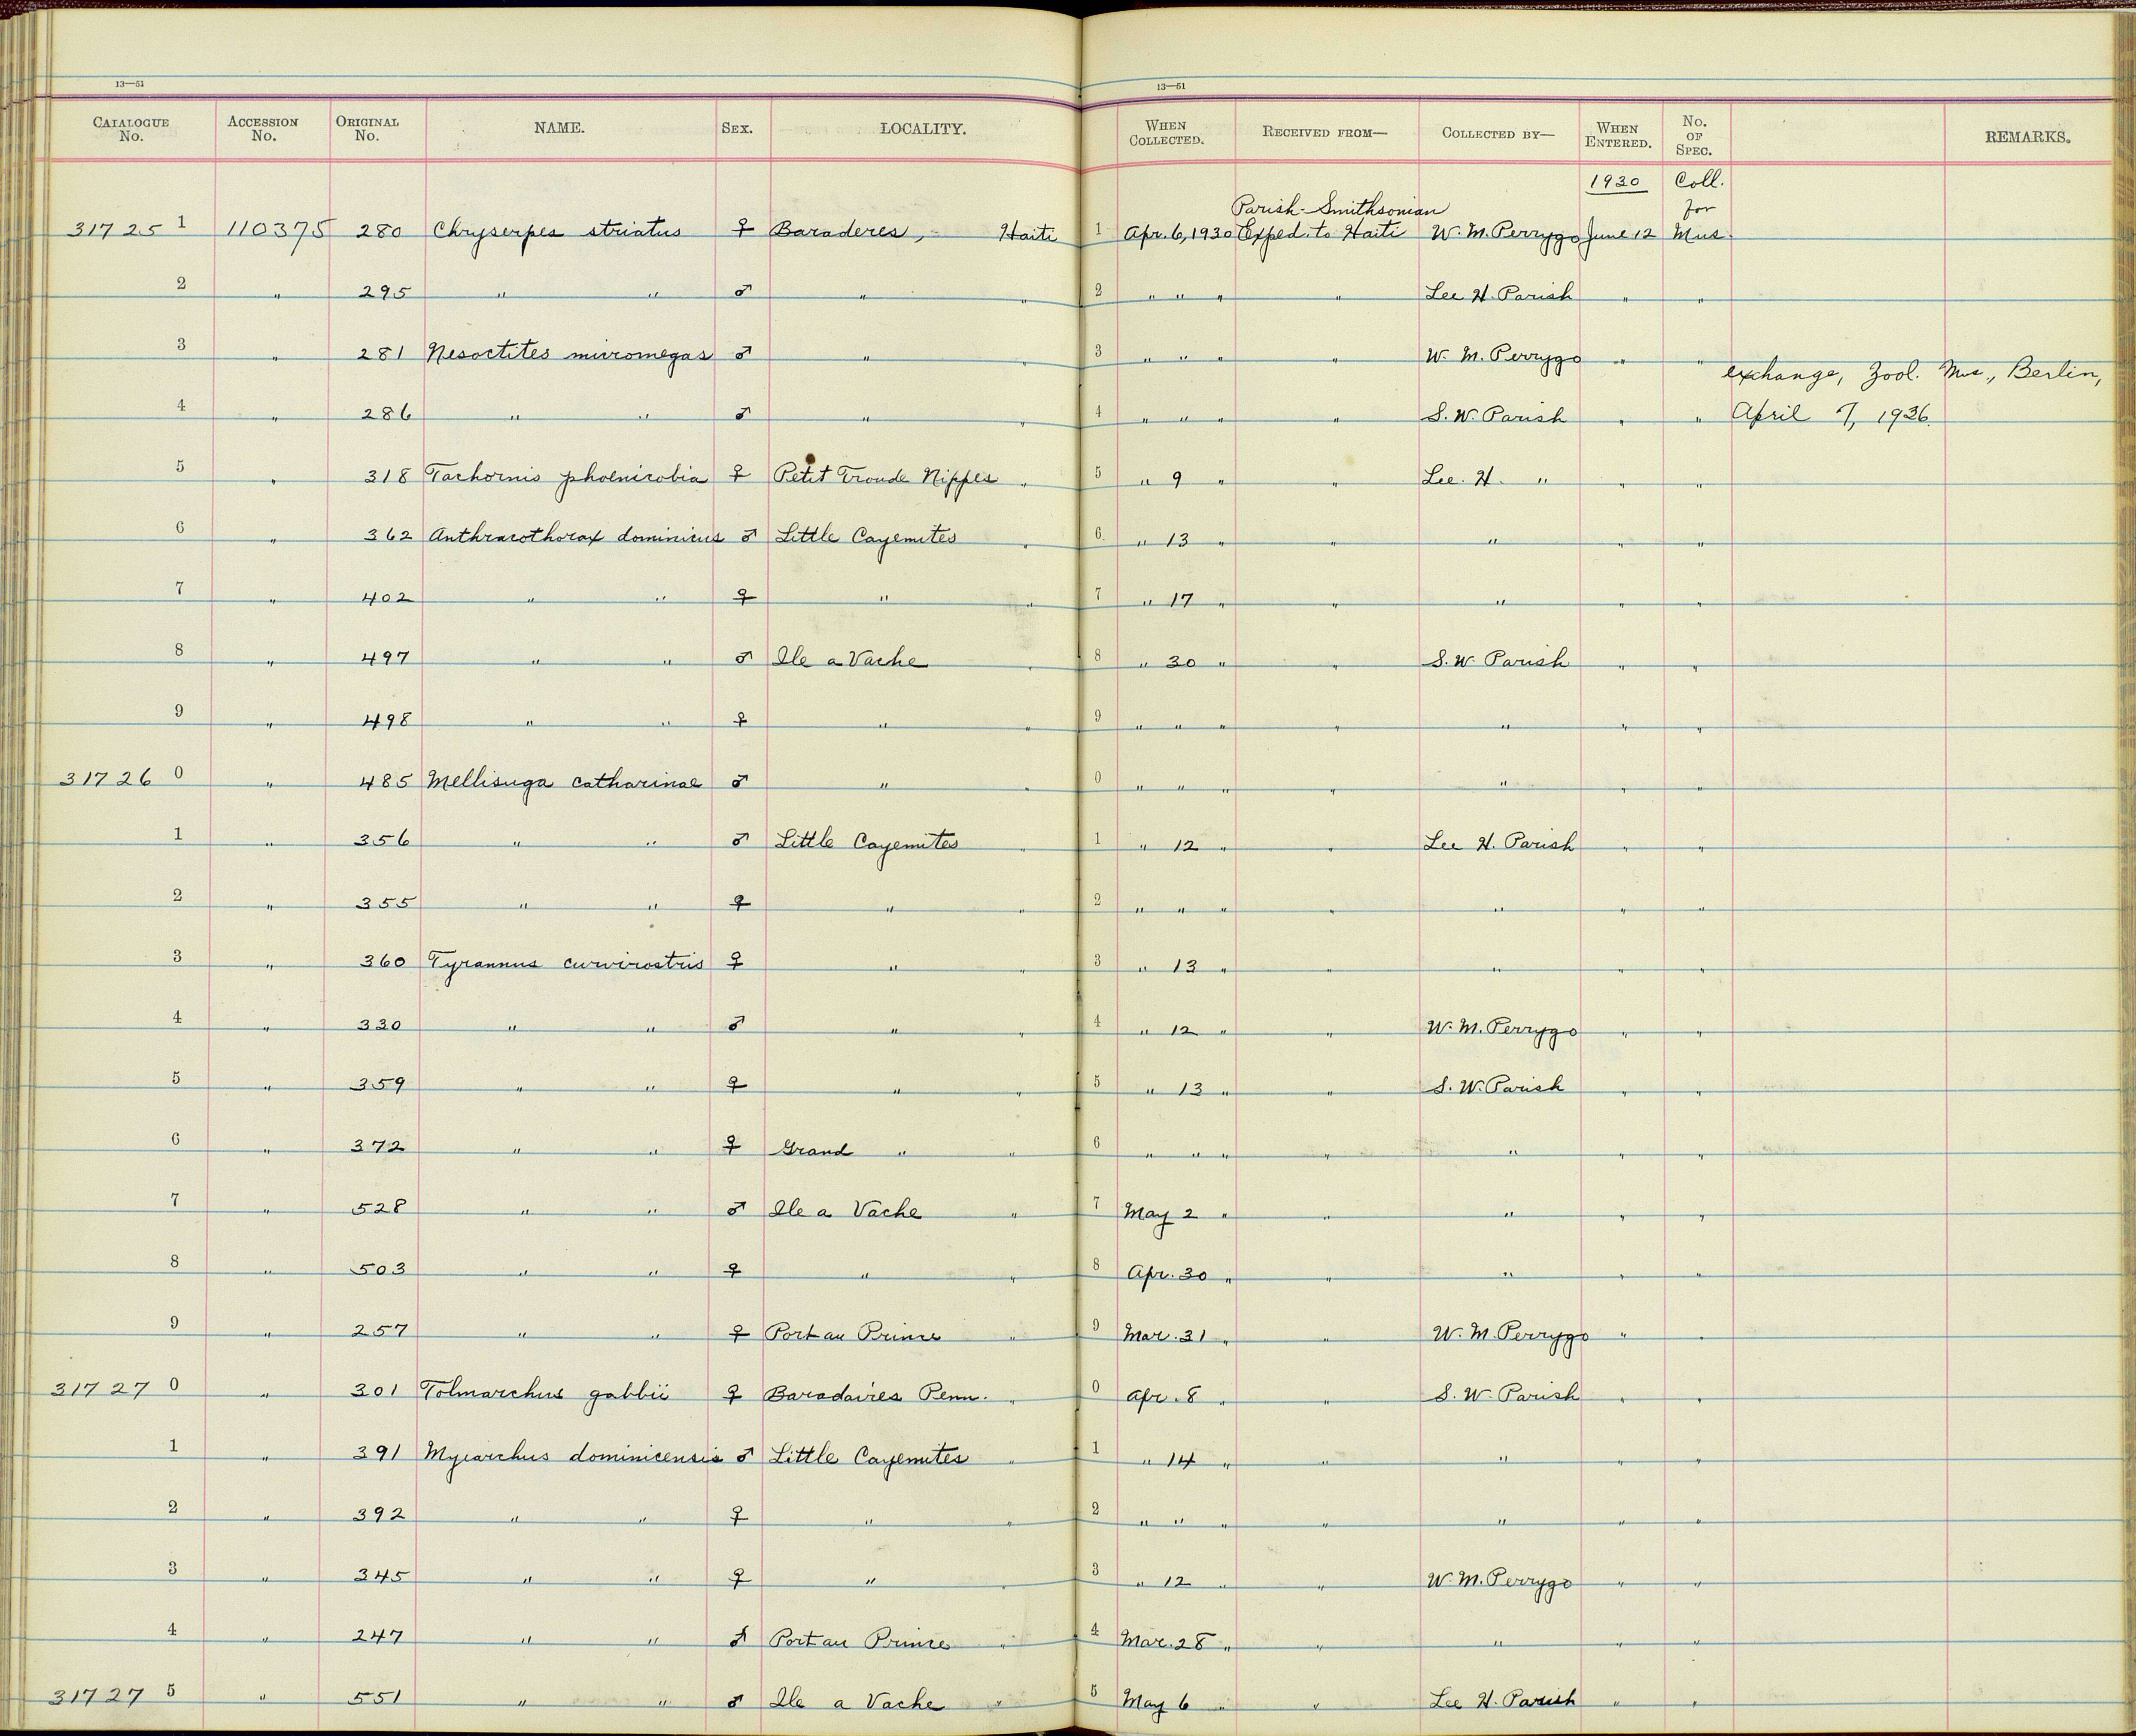 13—51 13—51
CATALOGUE No. ACCESSION No. ORIGINAL No. NAME. SEX. LOCALITY. WHEN COLLECTED. RECEIVED FROM— COLLECTED BY— WHEN ENTERED. No. OF SPEC. REMARKS.
1930 Coll. for
Parish-Smithsonian
31725 1 110375 280 Chryserpes striatus ♀ Baraderes, Haiti 1 Apr. 6, 1930 Exped. to Haiti W. M. Perrygo June 12 Mus.
2 " 295 " " ♂ " " 2 " " " " Lee H. Parish " "
3 " 281 Nesoctites micromegas ♂ " 3 " " " " W. M. Perrygo " "
exchange, Zool. Mus., Berlin,
4 " 286 " " ♂ " " 4 " " " " S. W. Parish " " April 7, 1936.
5 " 318 Tachornis phoenicobia ♀ Petit Troude Nippes " 5 " 9 " " Lee. H. " " "
6 " 362 Anthracothorax dominicus ♂ Little Cayemites " 6 " 13 " " " " "
7 " 402 " " ♀ " " 7 " 17 " " " " "
8 " 497 " " ♂ Ile a Vache " 8 " 30 " " S. W. Parish " "
9 " 498 " " ♀ " " 9 " " " " " " "
31726 0 " 485 Mellisuga catharinae ♂ " " 0 " " " " " " "
1 " 356 " " ♂ Little Cayemites " 1 " 12 " " Lee H. Parish " "
2 " 355 " " ♀ " " 2 " " " " " " "
3 " 360 Tyrannus curvirostris ♀ " " 3 " 13 " " " " "
4 " 330 " " ♂ " " 4 " 12 " " W. M. Perrygo " "
5 " 359 " " ♀ " " 5 " 13 " " S. W. Parish " "
6 " 372 " " ♀ Grand " " 6 " " " " " " "
7 " 528 " " ♂ Ile a Vache " 7 May 2 " " " " "
8 " 503 " " ♀ " " 8 Apr. 30 " " " " "
9 " 257 " " ♀ Port au Prince " 9 Mar. 31 " " W. M. Perrygo " "
31727 0 " 301 Tolmarchus gabbii ♀ Baradaires Penn. " 0 Apr. 8 " " S. W. Parish " "
1 " 391 Myiarchus dominicensis ♂ Little Cayemites " 1 " 14 " " " " "
2 " 392 " " ♀ " " 2 " " " " " " "
3 " 345 " " ♀ " " 3 " 12 " " W. M. Perrygo " "
4 " 247 " " ♂ Port au Prince " 4 Mar. 28 " " " " "
31727 5 " 551 " " ♂ Ile a Vache " 5 May 6 " " Lee H. Parish " "